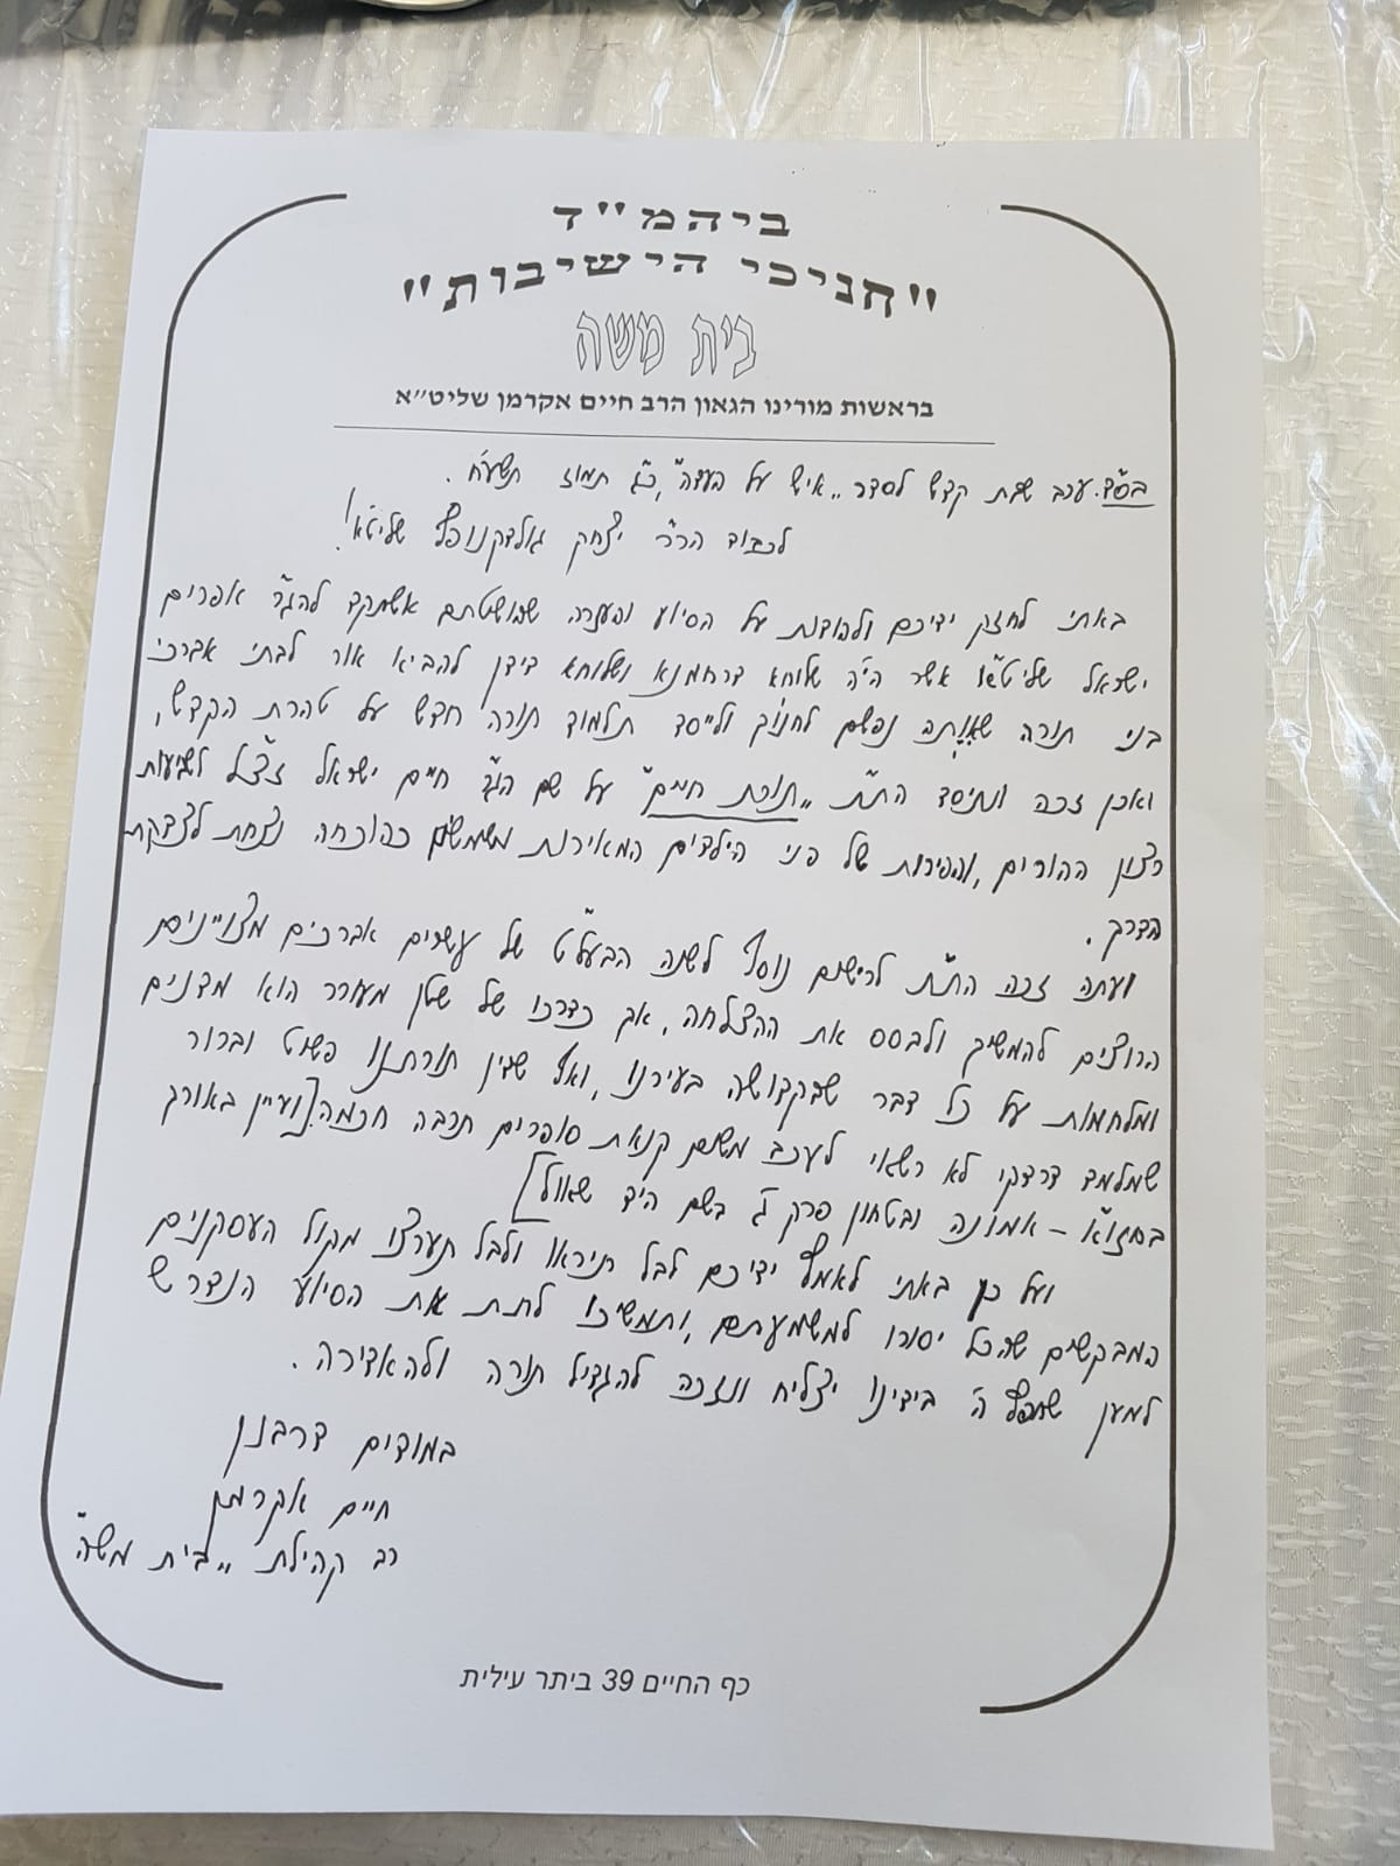 ביהמ"ד
"חניכי הישיבות"
בית משה
בראשות מורינו הגאון הרב חיים אקרמן שליט"א
בס"ד. ערב שבת קדש לסדר "איש על העדה", כ"ג תמוז תשע"ח.
לכבוד הר"ר יצחק גולדקנופף שליט"א!
באתי לחזק ידיכם ולהודות על הסיוע והעזרה שהושטתם אשתקד להג"ר אפרים
ישראל שליט"א אשר הי' שלוחא דרחמנא ושלוחא דידן להביא אור לבתי אברכי
בני תורה שאִוְּתה נפשם לחנוך ולייסד תלמוד תורה חדש על טהרת הקדש,
ואכן זכה ונתיסד הת"ת "תורת חיים" על שם הג"ר חיים ישראל זצ"ל לשביעות
רצון ההורים, והפירות של פני הילדים המאירות ומשמשים כהוכחה נצחת לצדקת
הדרך.
ועתה זכה הת"ת לרישום נוסף לשנה הבעל"ט של עשרים אברכים מצויינים
הרוצים להמשיך ולבסס את ההצלחה, אך כדרכו של שטן מעורר הוא מדנים
ומלחמות על כל דבר שבקדושה בעירנו, ואף שדין תורתנו פשוט וברור
שמלמד דרדקי לא רשאי לעכב משום קנאת סופרים תרבה חכמה. [ועיין באורך
בחזו"א - אמונה ובטחון פרק ג' בשם היד שאול]
ועל כן באתי לאמץ ידיכם לבל תיראו ולבל תערצו מקול העסקנים
המבקשים שהכל יסורו למשמעתם, ותמשיכו לתת את הסיוע הנדרש
למען שחפץ ה' בידינו יצליח ונזכה להגדיל תורה ולהאדירה.
במודים דרבנן
חיים אקרמן
רב קהילת "בית משה"
כף החיים 39 ביתר עילית